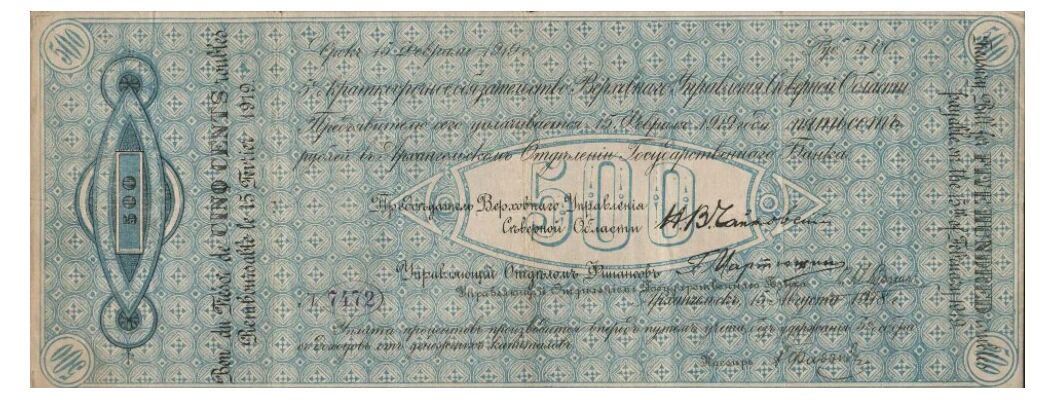 Срокъ 15 Февраля 1919 г.
Руб. 500
5% краткосрочное обязательство Верховнаго Управленія Сѣверной Области
Предъявителю сего уплачивается 15 Февраля 1919 года пятьсотъ
рублей въ Архангельскомъ Отдѣленіи Государственнаго Банка
500
Предсѣдатель Верховнаго Управленія
Сѣверной Области Н.В. Чайковскій
Управляющій Отдѣломъ Финансовъ
Управляющій Отдѣленіемъ Государственнаго Банка
7472
Архангельскъ, 15 Августа 1918 г.
Уплата процентовъ производится впередъ путемъ учета, безъ удержанія 5% сбора
съ доходовъ отъ денежныхъ капиталовъ
Кассиръ
500
Bon du Trésor de CINQ CENTS roubles
Remboursable le 15 Février 1919
Treasury Bill for FIVE HUNDRED roubles
payable at the 15th of February 1919
500
500
500
500